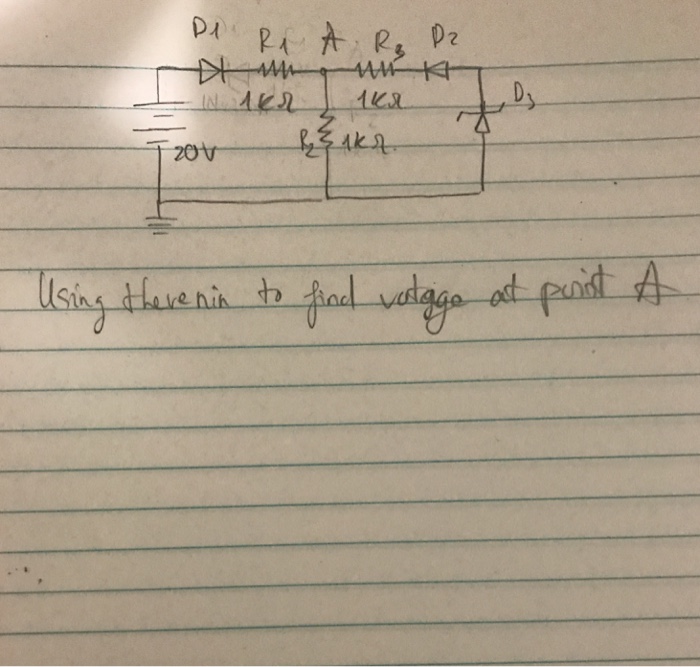 D1 R1 A R3 D2
1kΩ 1kΩ D3
20V R2 1kΩ.
Using thevenin to find votage at point A